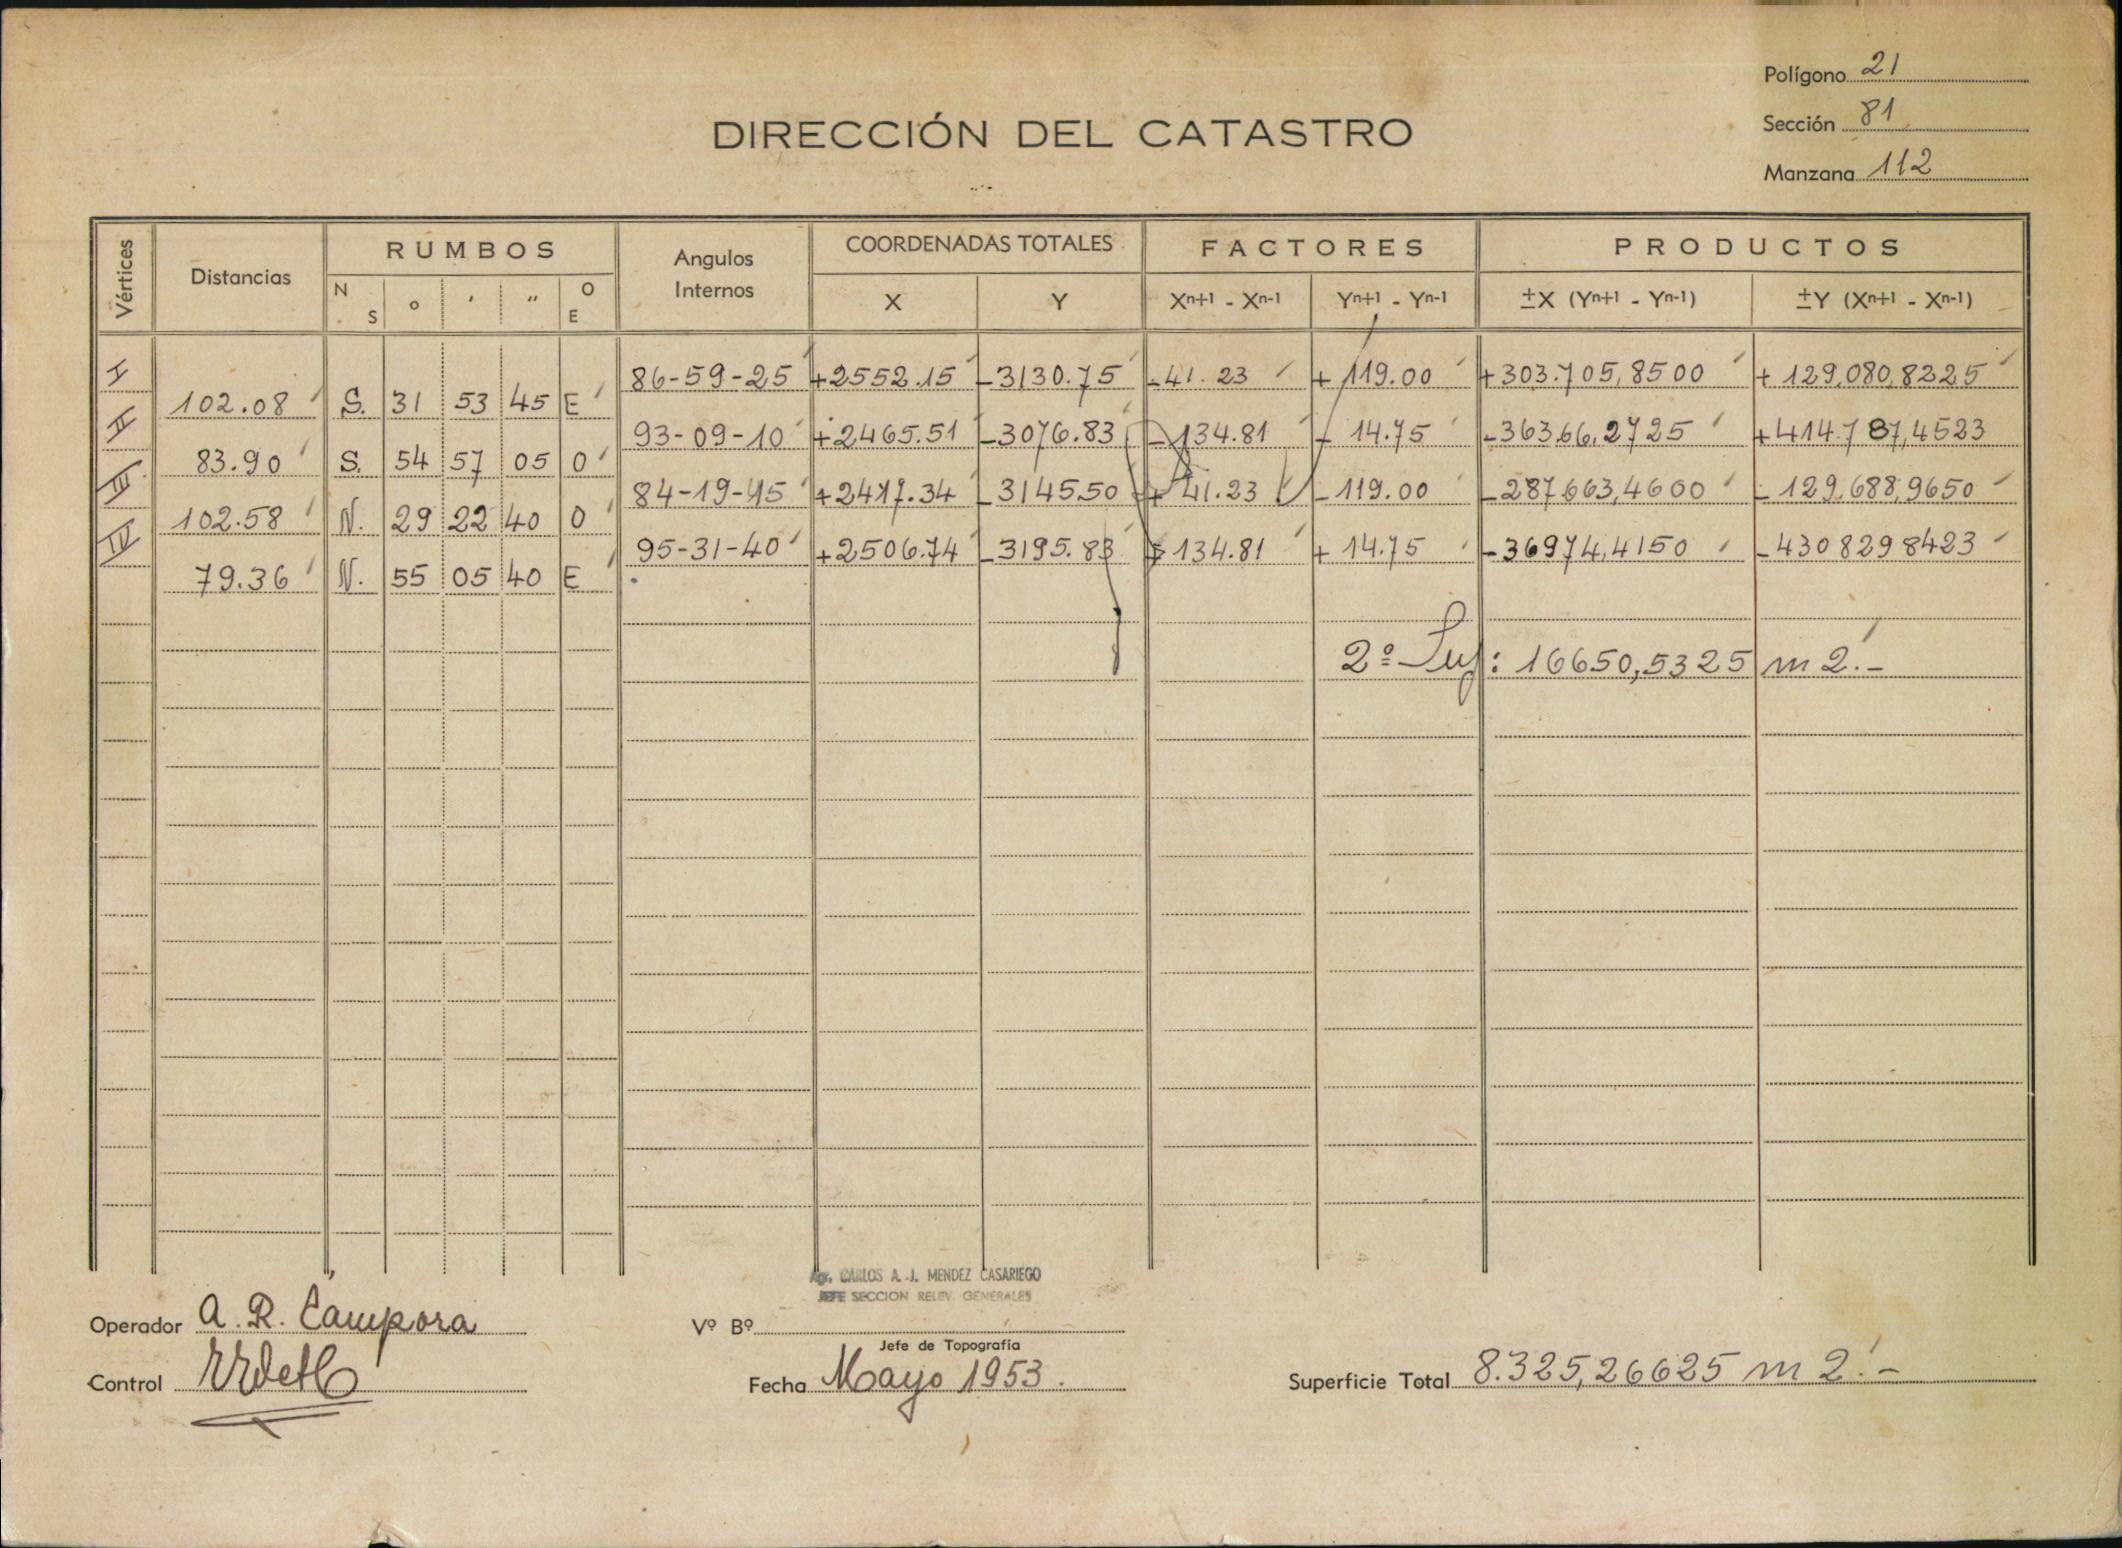 Polígono 21
Sección 81
DIRECCIÓN DEL CATASTRO
Manzana 112
Vértices Distancias RUMBOS Angulos Internos COORDENADAS TOTALES FACTORES PRODUCTOS
N S o ′ ″ O E X Y Xn+1 - Xn-1 Yn+1 - Yn-1 ±X (Yn+1 - Yn-1) ±Y (Xn+1 - Xn-1)
I 86-59-25 +2552.15 -3130.75 -41.23 +119.00 +303.705,8500 +129,080,8225
102.08 S. 31 53 45 E
II 93-09-10 +2465.51 -3076.83 -134.81 - 14.75 -36366,2725 +414.787,4523
83.90 S. 54 57 05 O
III 84-19-45 +2417.34 -3145.50 + 41.23 -119.00 -287.663,4600 -129.688,9650
102.58 N. 29 22 40 O
IV 95-31-40 +2506.74 -3195.83 +134.81 + 14.75 -36974,4150 -4308298423
79.36 N. 55 05 40 E
2º Sup: 16650,5325 m2.-
Agr. CARLOS A. J. MENDEZ CASARIEGO
JEFE SECCION RELEV. GENERALES
Operador A. R. Cámpora Vº Bº
Jefe de Topografía
Control Fecha Mayo 1953. Superficie Total 8.325,26625 m2.-